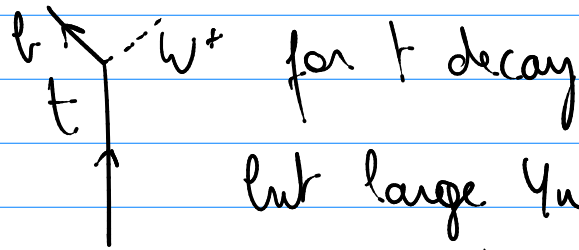 b W+ for t decay
t
but large Yu